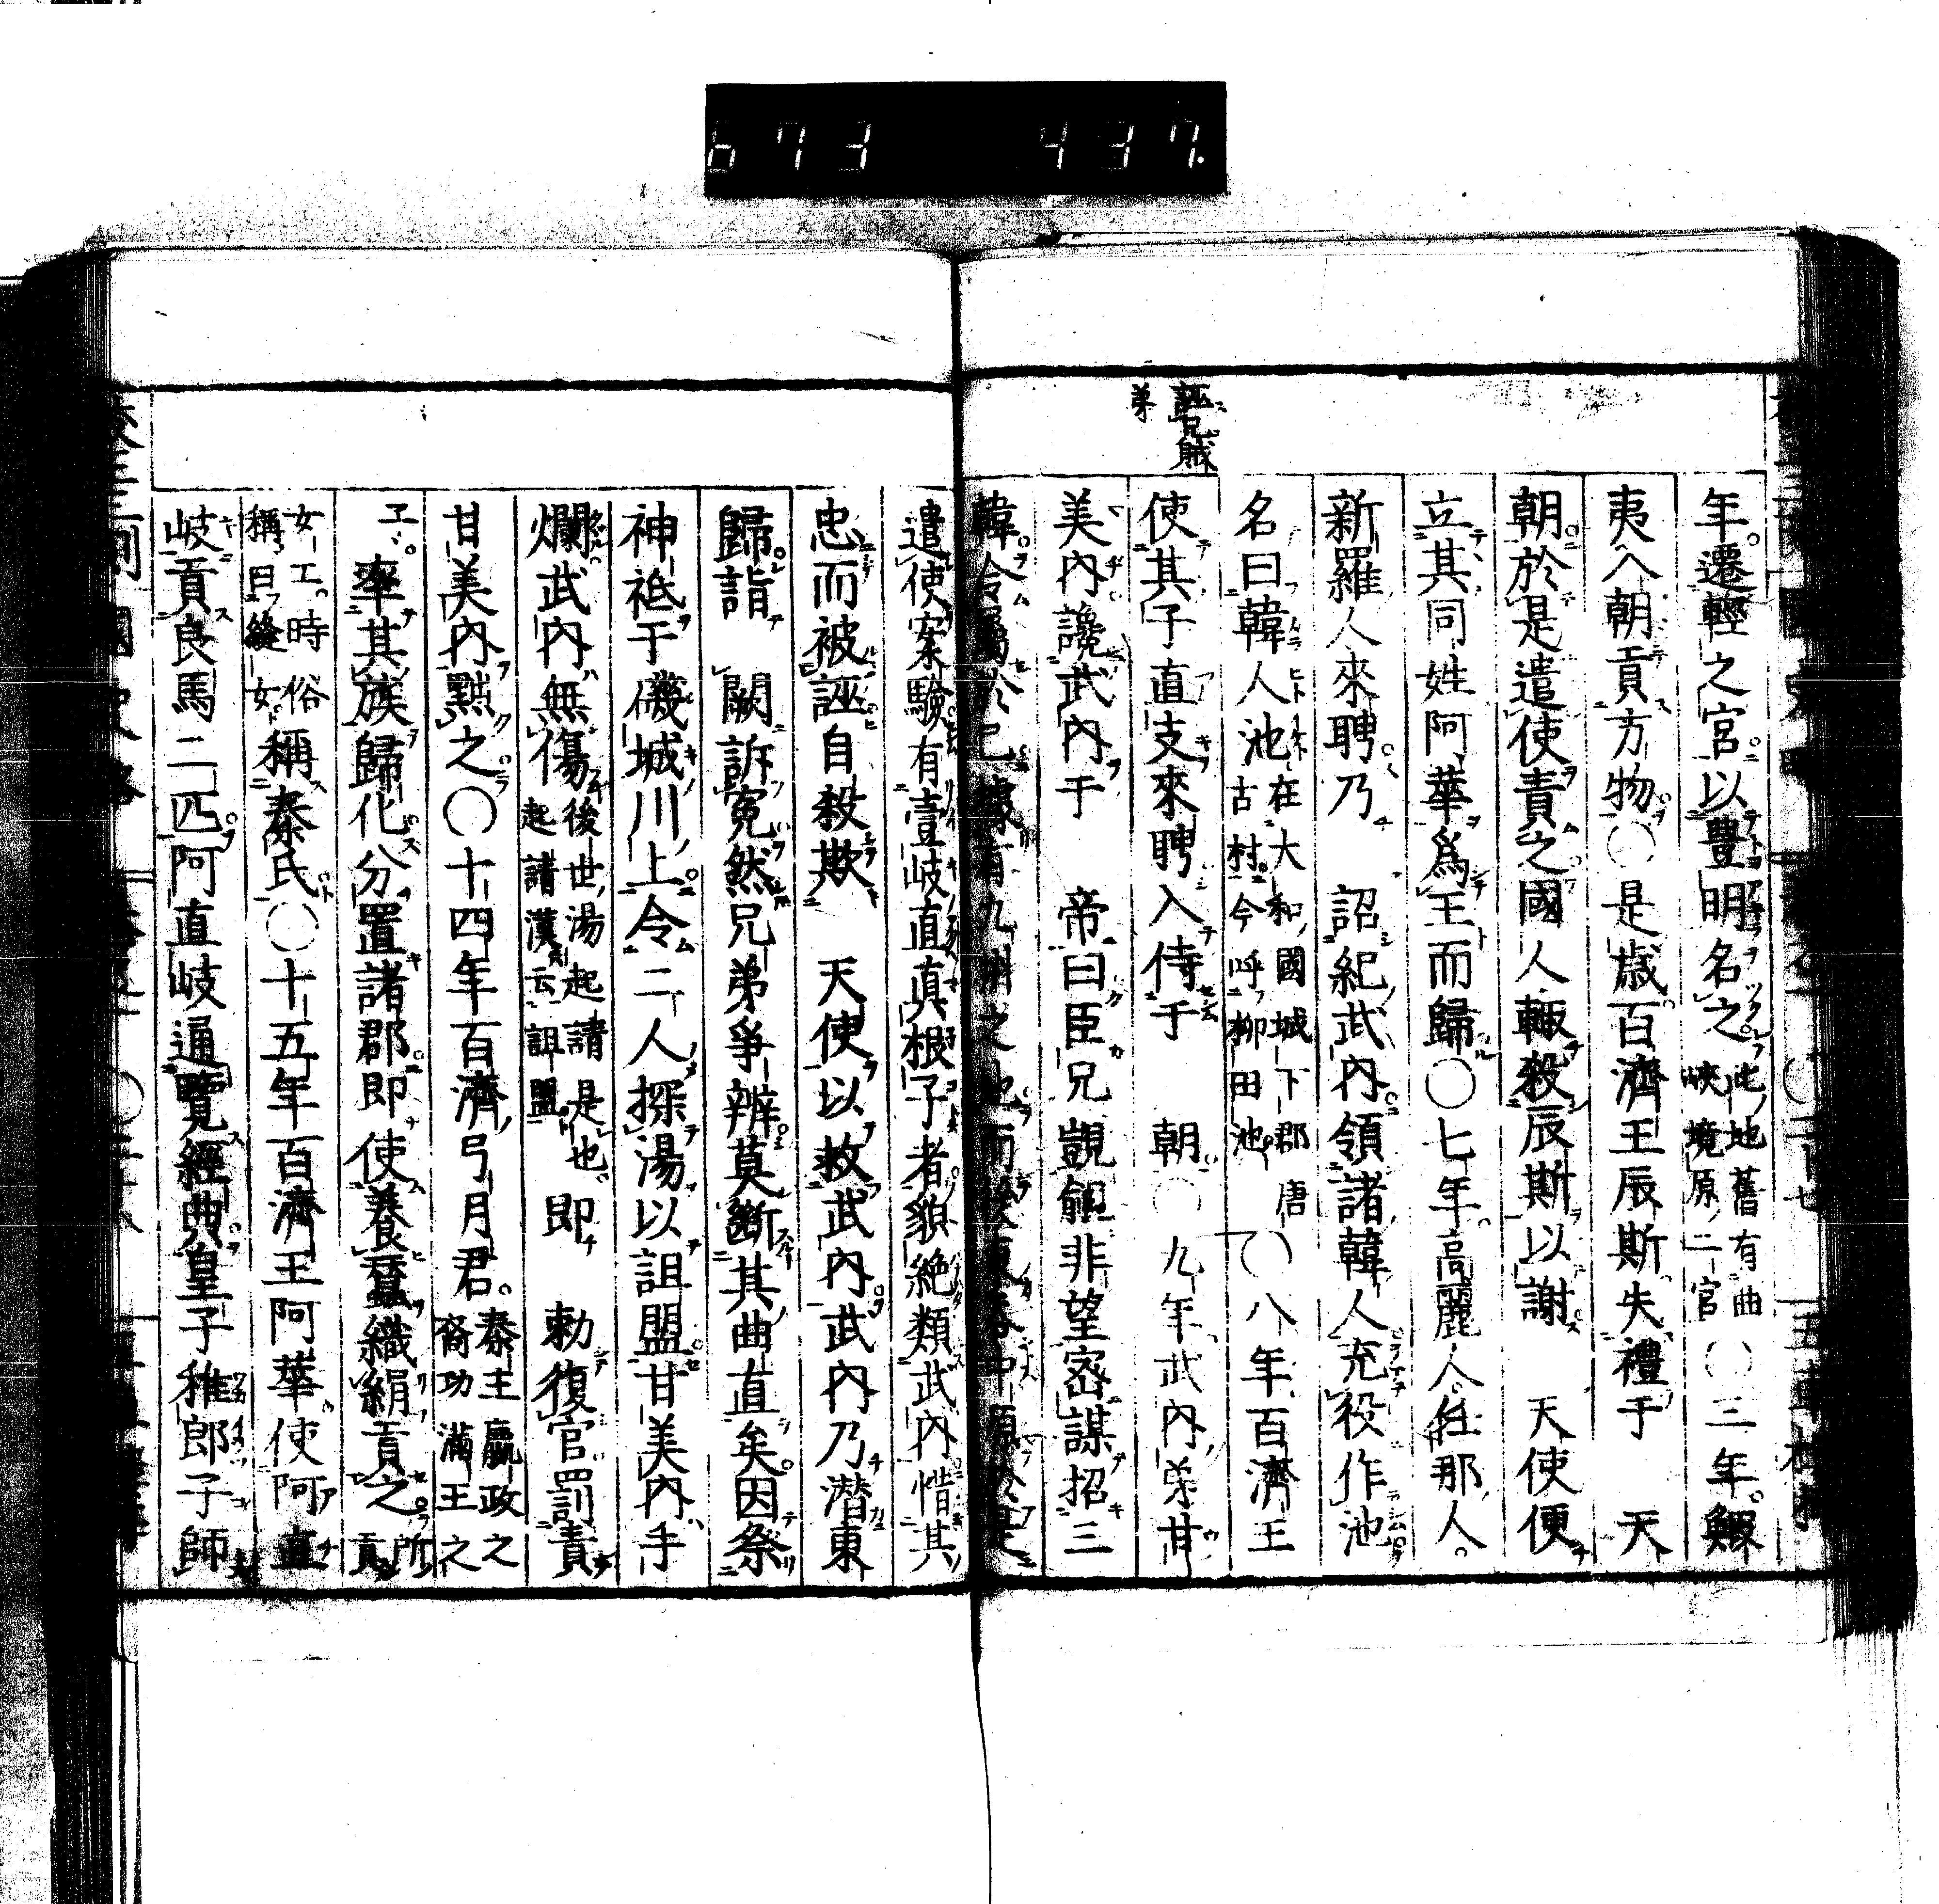 673 437.
誣兄賊
弟
年遷輕之宮以豊明名之此地舊有曲峽境原二宮〇三年鰕
夷入朝貢方物〇是歳百濟王辰斯失禮于　天
朝於是遣使責之國人輙殺辰斯以謝　天使便
立其同姓阿華爲王而歸〇七年高麗人任那人
新羅人來聘乃　詔紀武内領諸韓人充役作池
名曰韓人池在大和國城下郡唐古村今呼柳田池〇八年百濟王
使其子直支來聘入侍于　朝〇九年武内弟甘
美内讒武内于　帝曰臣兄覬覦非望密謀招三
韓令屬於己據有九州之地而後
遣使案驗有壹岐直真根子者貌絶類武内惜其
忠而被誣自殺欺　天使以救武内武内乃潜東
歸詣　闕訴寃然兄弟爭辨莫斷其曲直矣因祭
神祇于磯城川上令二人探湯以詛盟甘美内手
爛武内無傷後世湯起請是也起請漢云詛盟即　勅復官罰責
甘美内黙之〇十四年百濟弓月君秦主嬴政之裔功滿王之
子率其族歸化分置諸郡即使養蠶織絹貢之所貢
女工時俗稱曰縫女稱秦氏〇十五年百濟王阿華使阿直
岐貢良馬二匹阿直岐通覽經典皇子稚郎子師